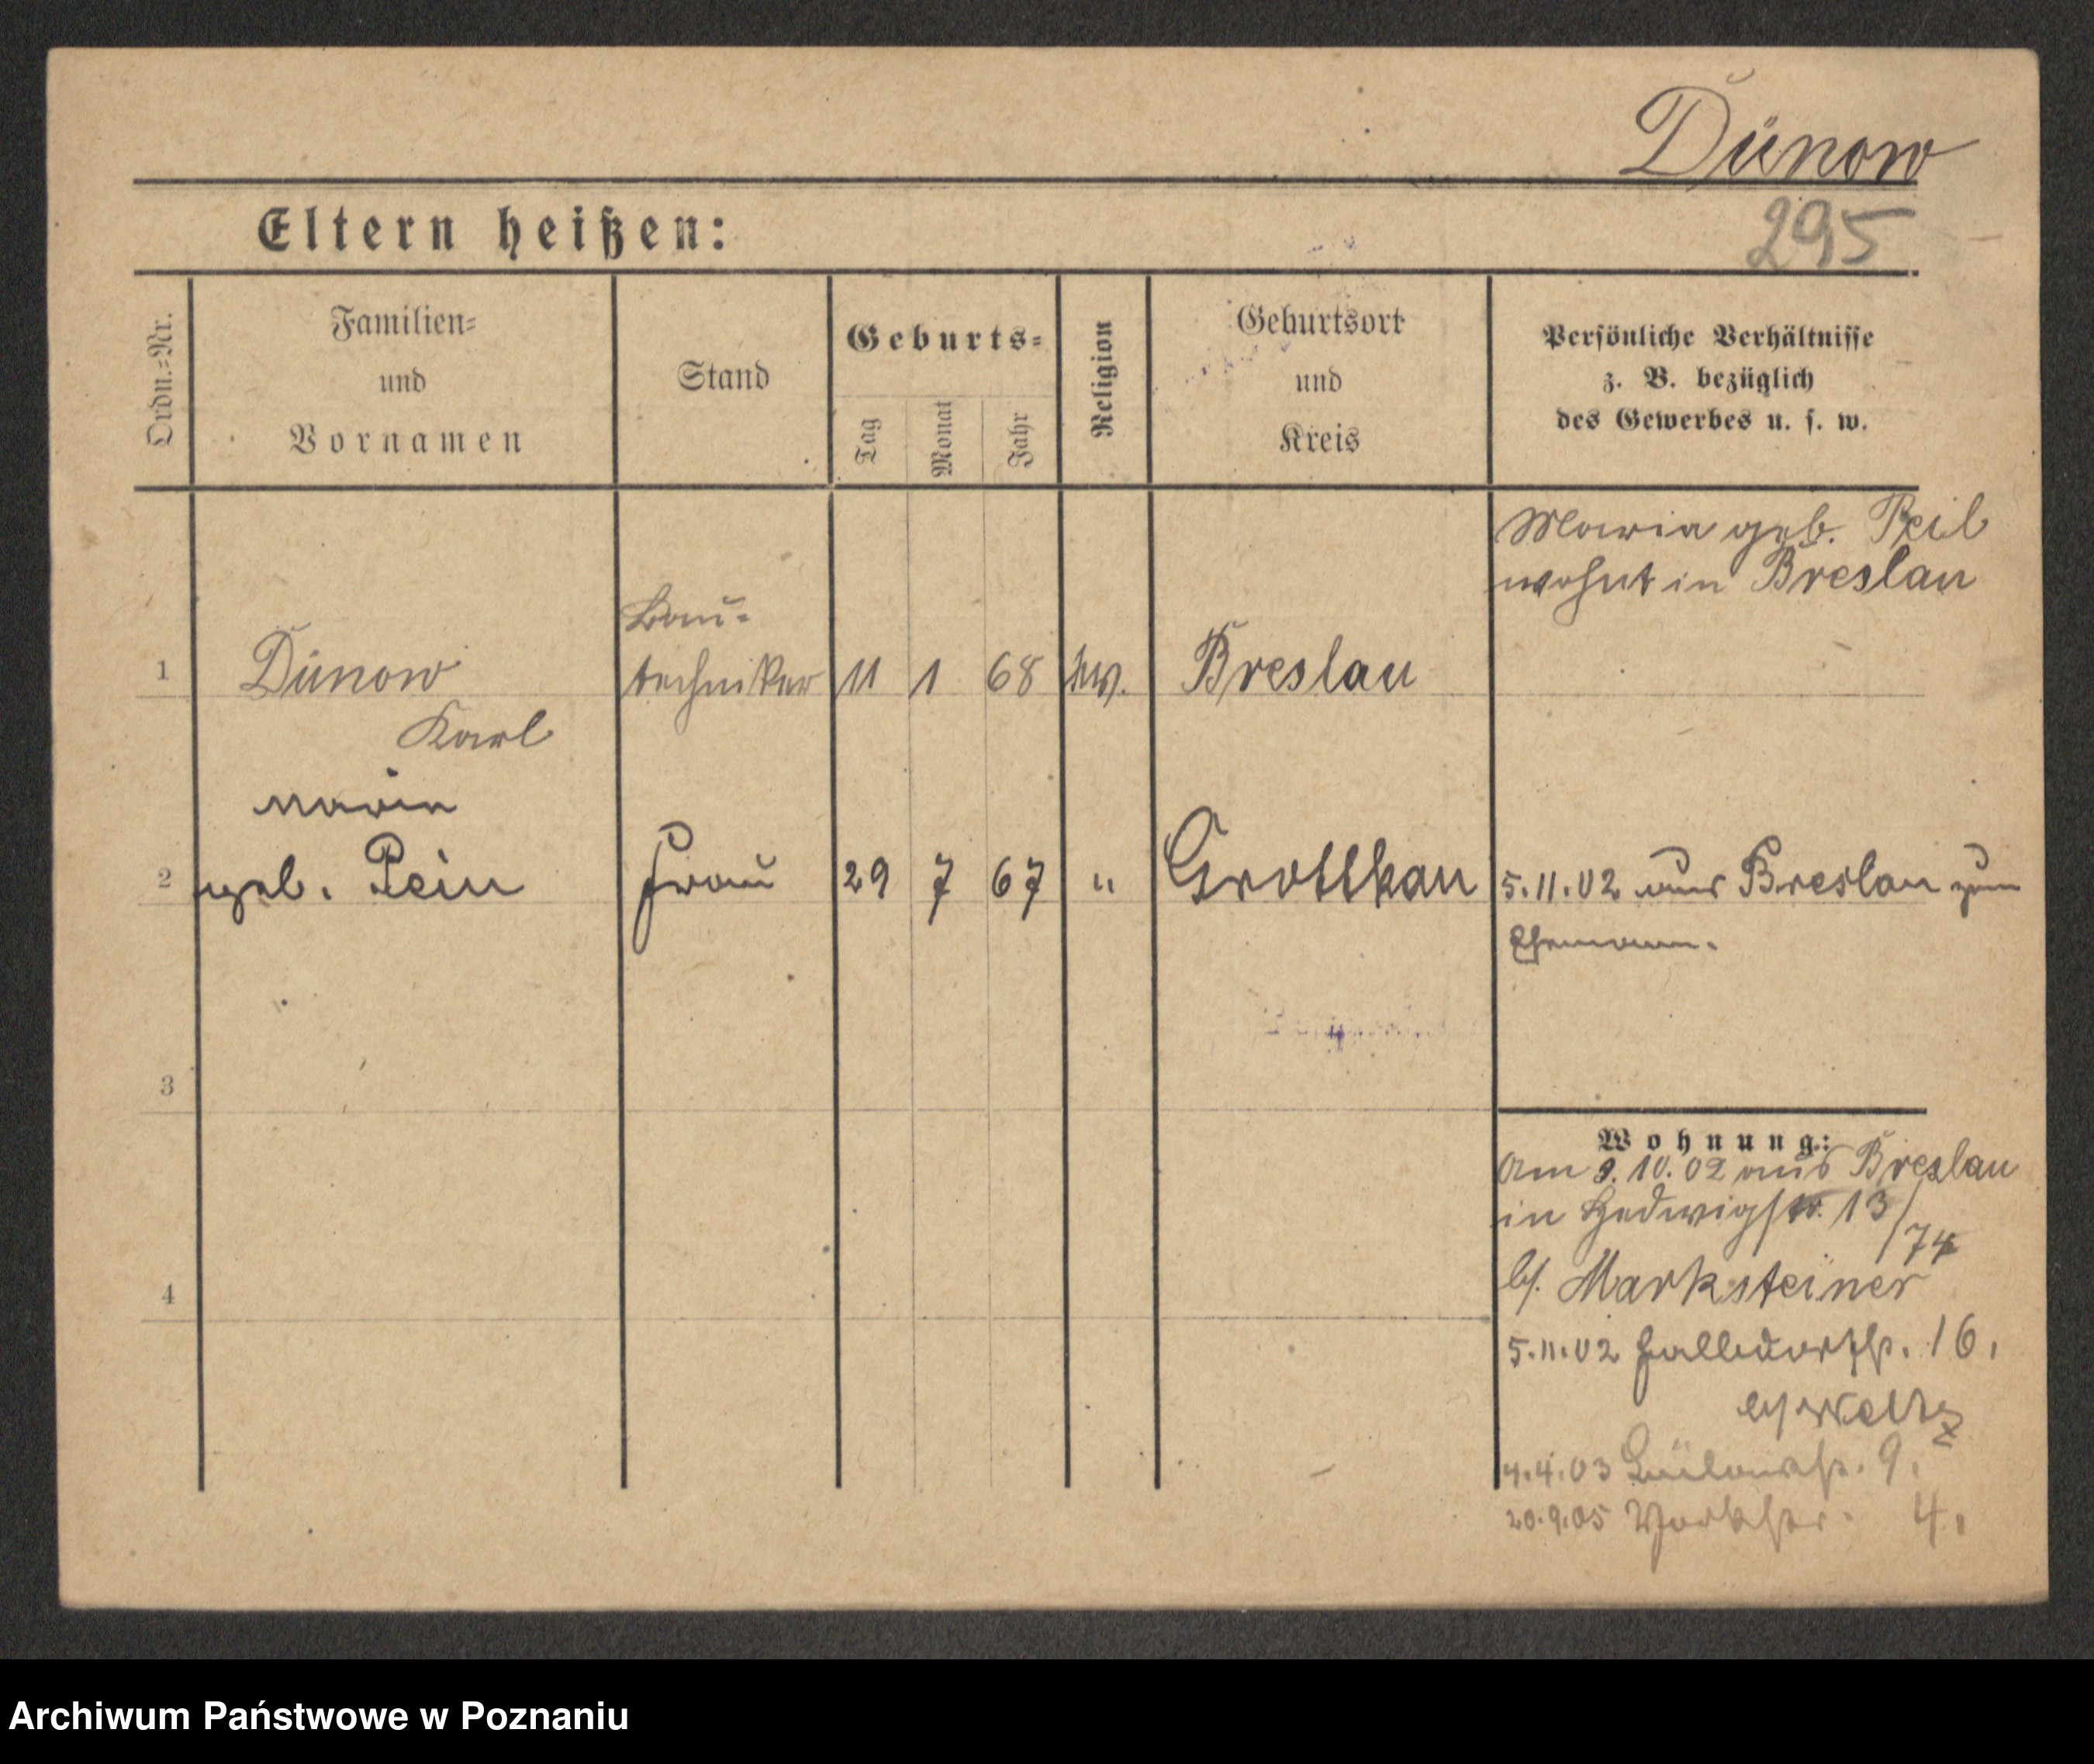 Dünow
Eltern heißen:
295
Ordn.=Nr.
Familien=
und
Vornamen
Stand
Geburts=
Tag
Monat
Jahr
Religion
Geburtsort
und
Kreis
Persönliche Verhältnisse
z. B. bezüglich
des Gewerbes u. s. w.
Maria geb. Peil
wohnt in Breslau
Bau-
1 Dünow techniker 11 1 68 ev. Breslau
Karl
Maria
2 geb. Pein Frau 29 7 67 " Grottkau 5.11.02 aus Breslau zum
Ehemann.
3
Wohnung:
Am 9.10.02 aus Breslau
in Hedwigstr. 13/
74
4
b/. Marksteiner
5.11.02 Halldorfstr. 16.
b/ Weltz
4.4.03 Bülowstr. 9.
20.9.05 Yorkstr. 4.
Archiwum Państwowe w Poznaniu